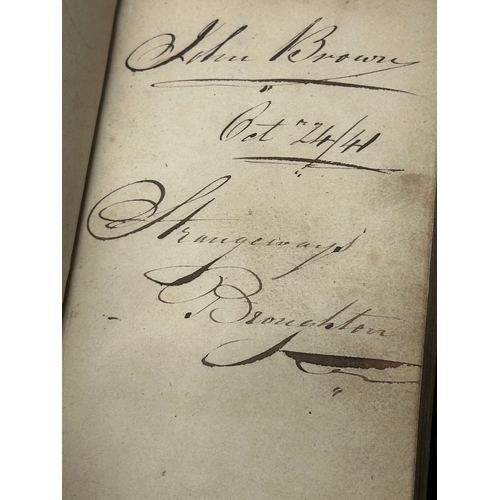 John Brown
Oct "24/41
Strangeways
Broughton